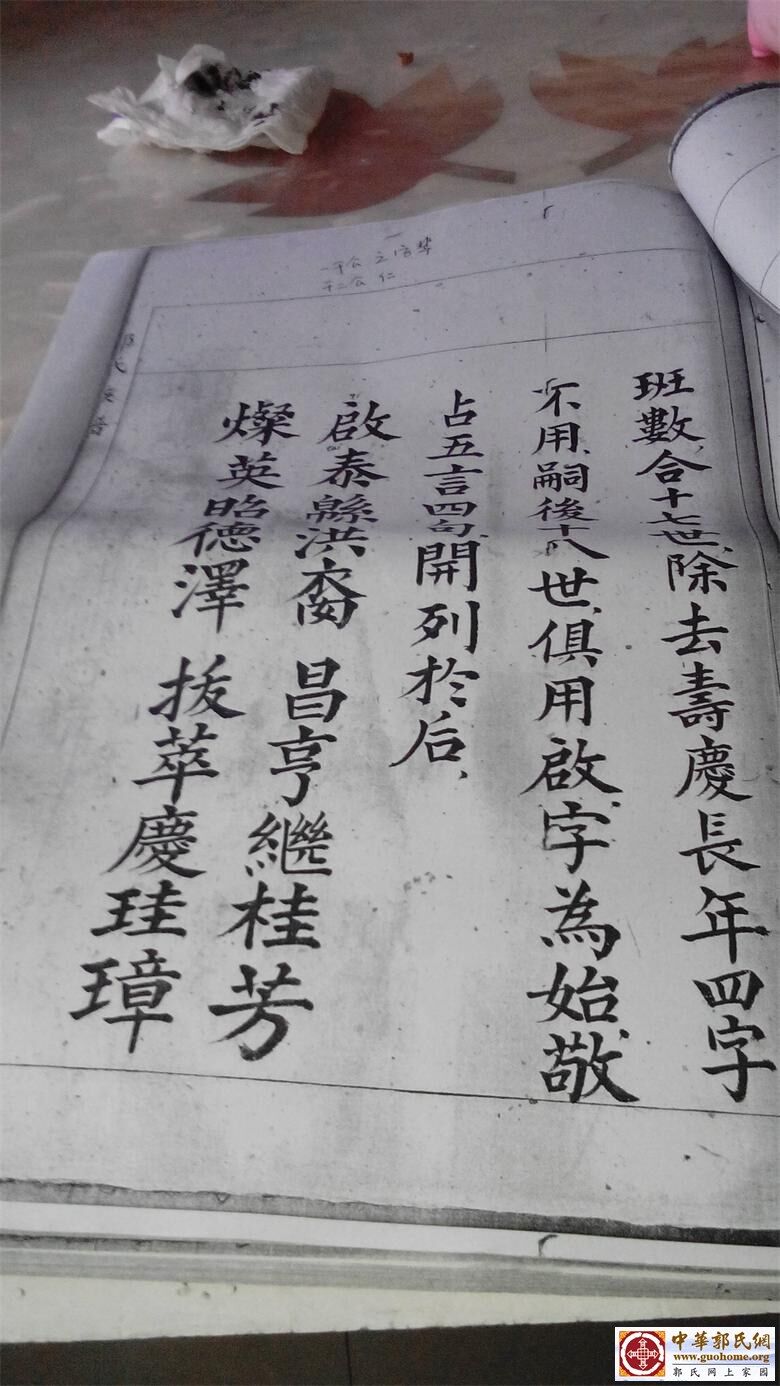 班數合十七世除去壽慶長年四字
不用嗣後十八世俱用啟字為始敬
占五言四句開列於后
啟泰緜洪裔 昌亨繼桂芳
燦英昭德澤 拔萃慶珪璋
中華郭氏網
www.guohome.org
郭氏网上家园